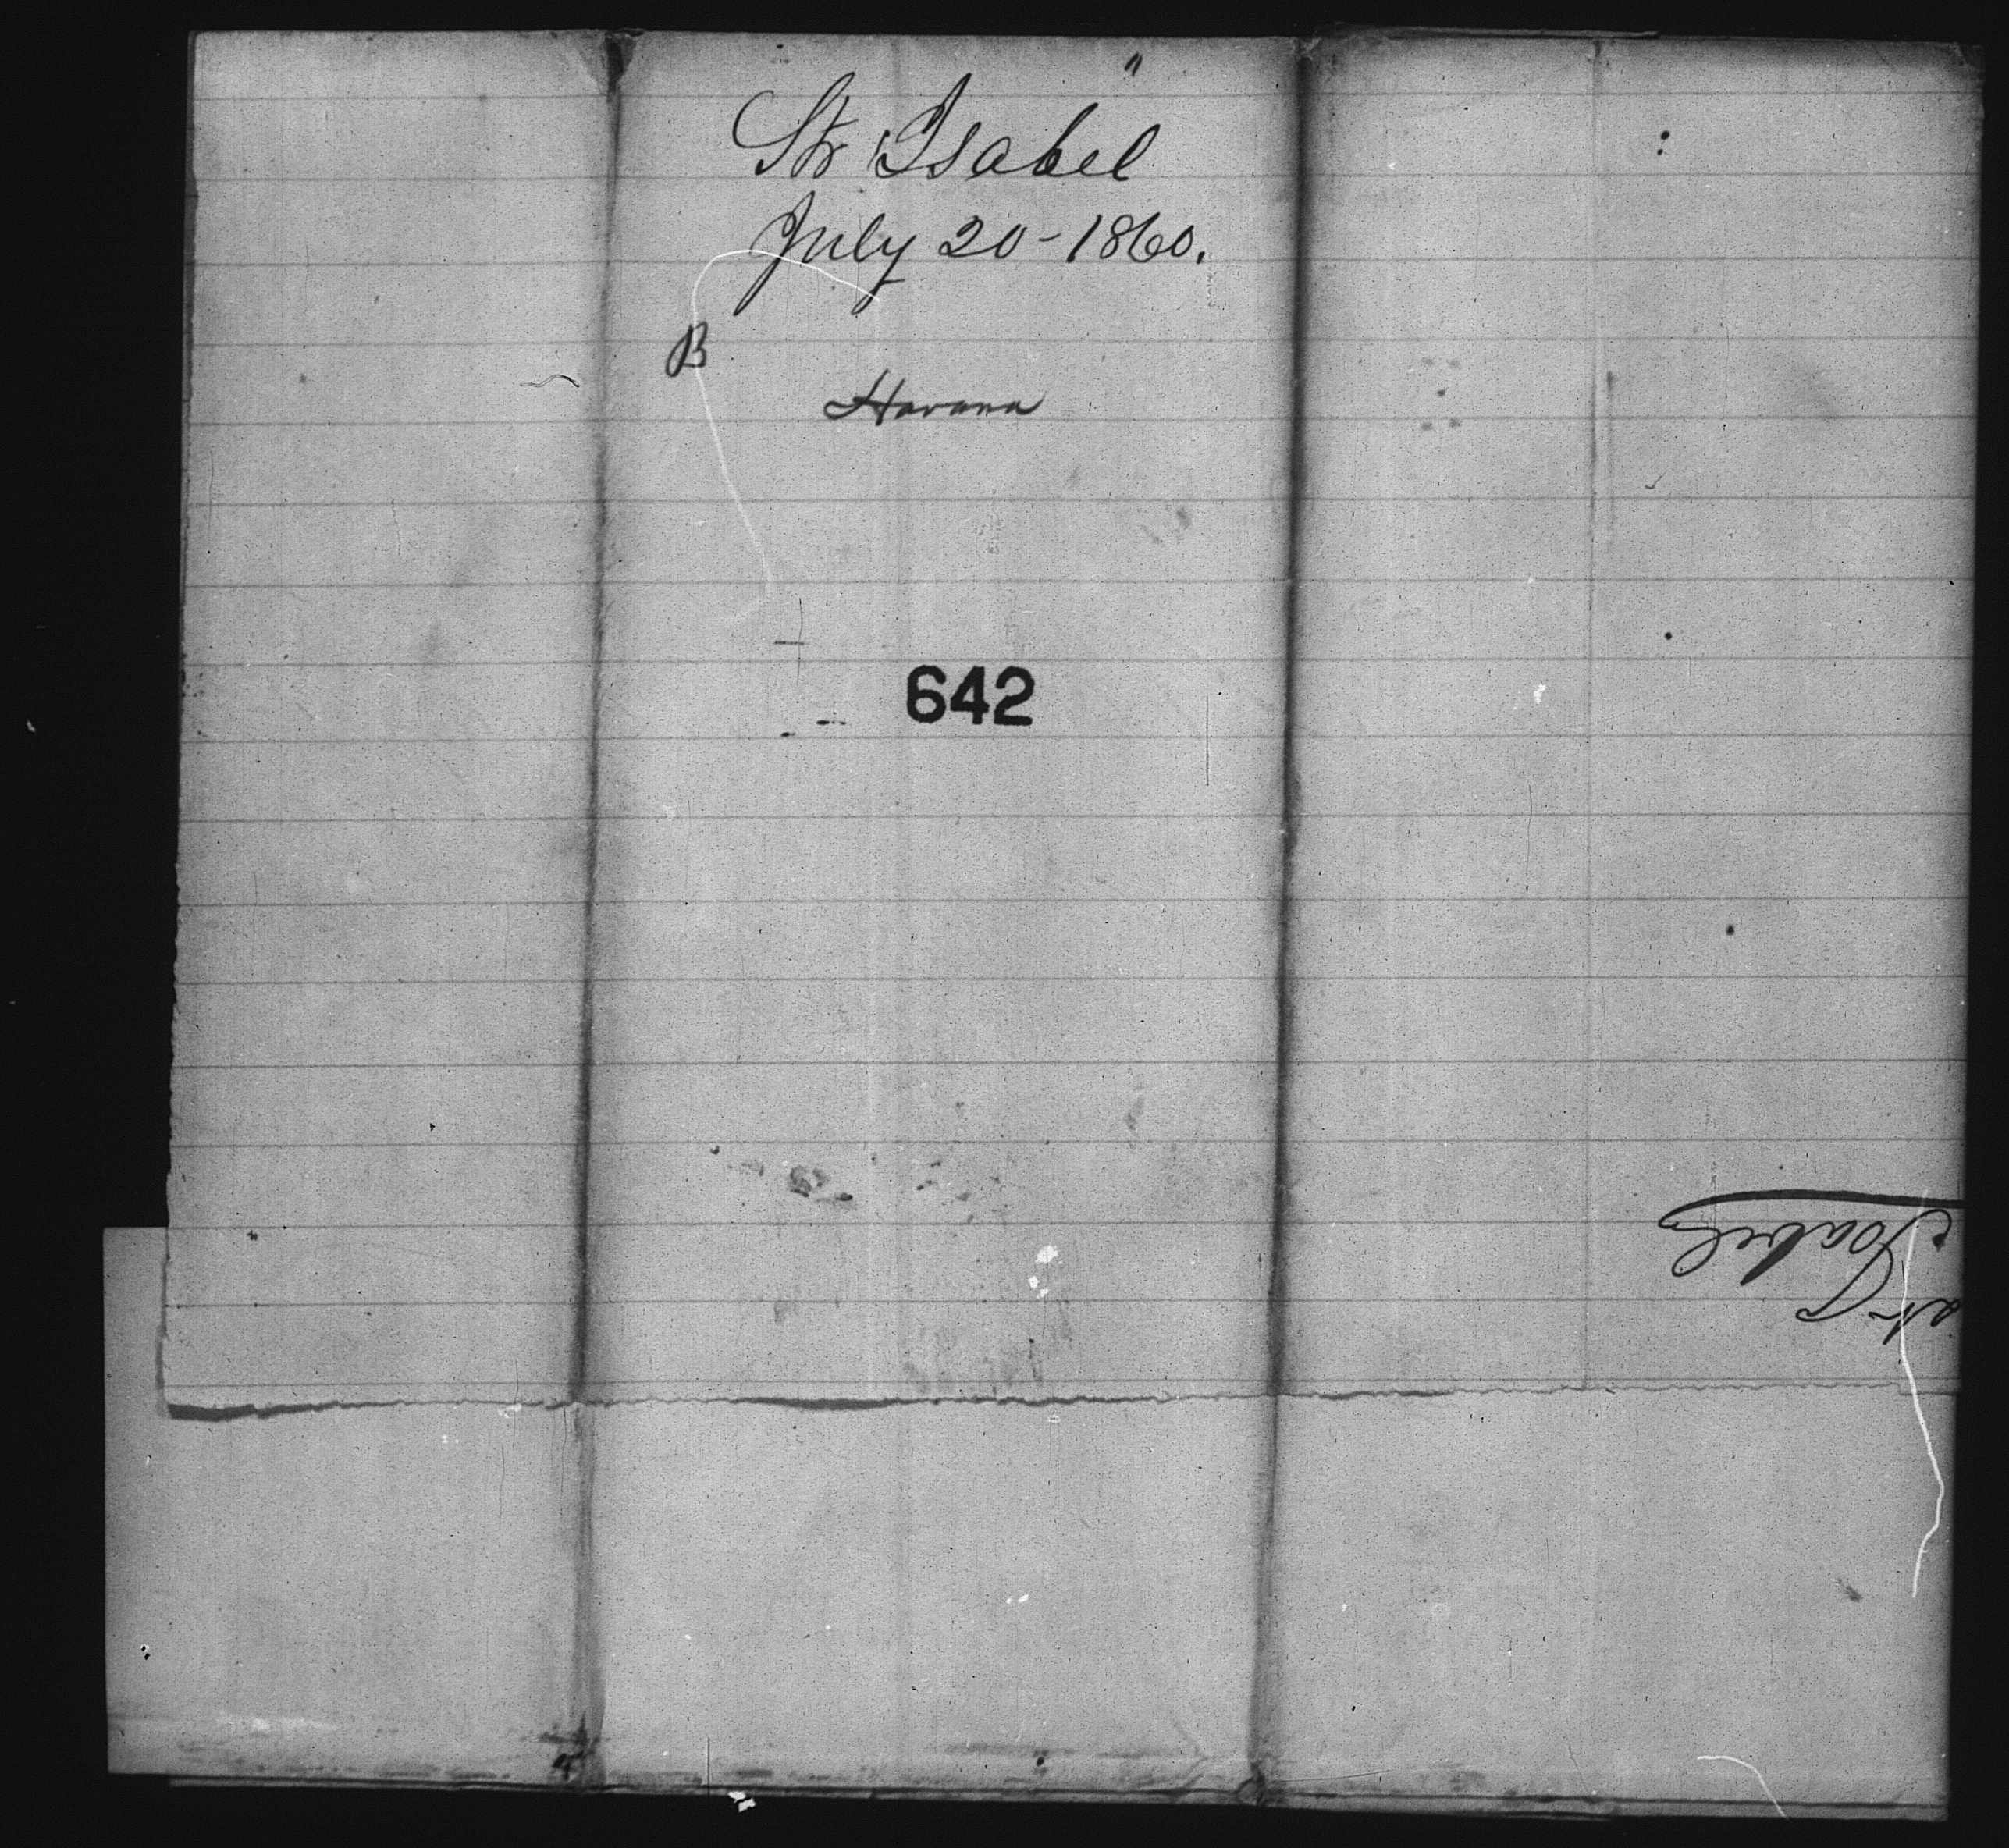 Str Isabel
July 20-1860.
B
Havana
642
Isabel